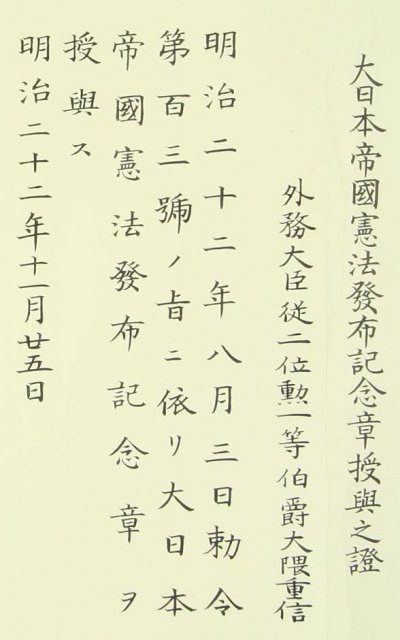 大日本帝國憲法發布記念章授與之證
外務大臣従二位勲一等伯爵大隈重信
明治二十二年八月三日勅令
第百三號ノ旨ニ依リ大日本
帝國憲法發布記念章ヲ
授與ス
明治二十二年十一月廿五日